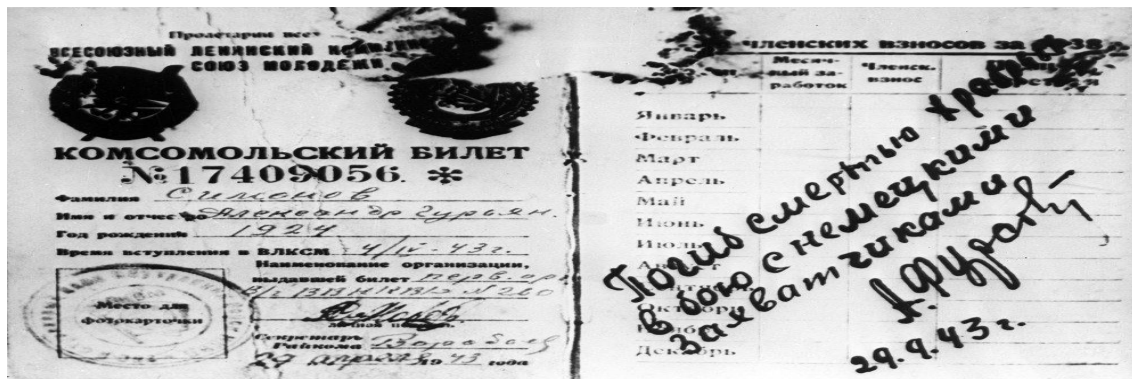 Пролетарии всех
ВСЕСОЮЗНЫЙ ЛЕНИНСКИЙ
СОЮЗ МОЛОДЕЖИ
КОМСОМОЛЬСКИЙ БИЛЕТ
№17409056.
Фамилия Симонов
Имя и отчество Александр Гурьян.
Год рождения 1924
Время вступления в ВЛКСМ 4/IV-43г.
Наименование организации,
выдавшей билет перв. орг.
Место для
фотокарточки
личная подпись
Секретарь
Райкома
29 апреля 1943 года
членских взносов за 1938
Месячный заработок
Членск. взнос
Январь
Февраль
Март
Апрель
Май
Июнь
Июль
Октябрь
Декабрь
Погиб смертью храбрых
в бою с немецкими
захватчиками
А.
29.9.43 г.